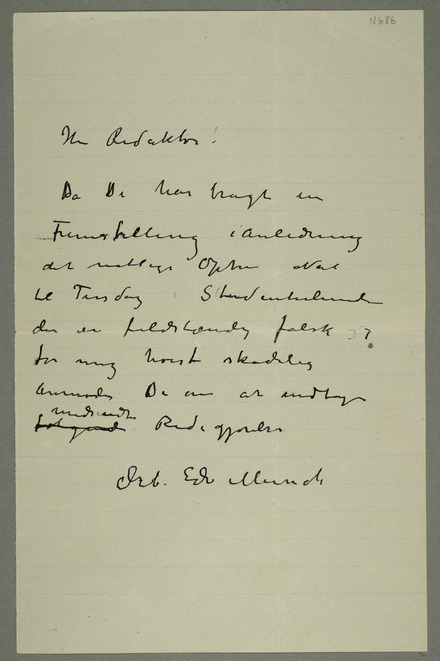 N 686
Hr Redaktør!
Da De har bragt en
Fremstilling i Anledning
det natlige Optrin Nat
til Tirsdag i Studenterlunden
der er fuldstændig falsk og
for mig høist skadelig
anmodes De om at indtage
medsendte
følgende Redegjørelse
Ærb. Edv Munch